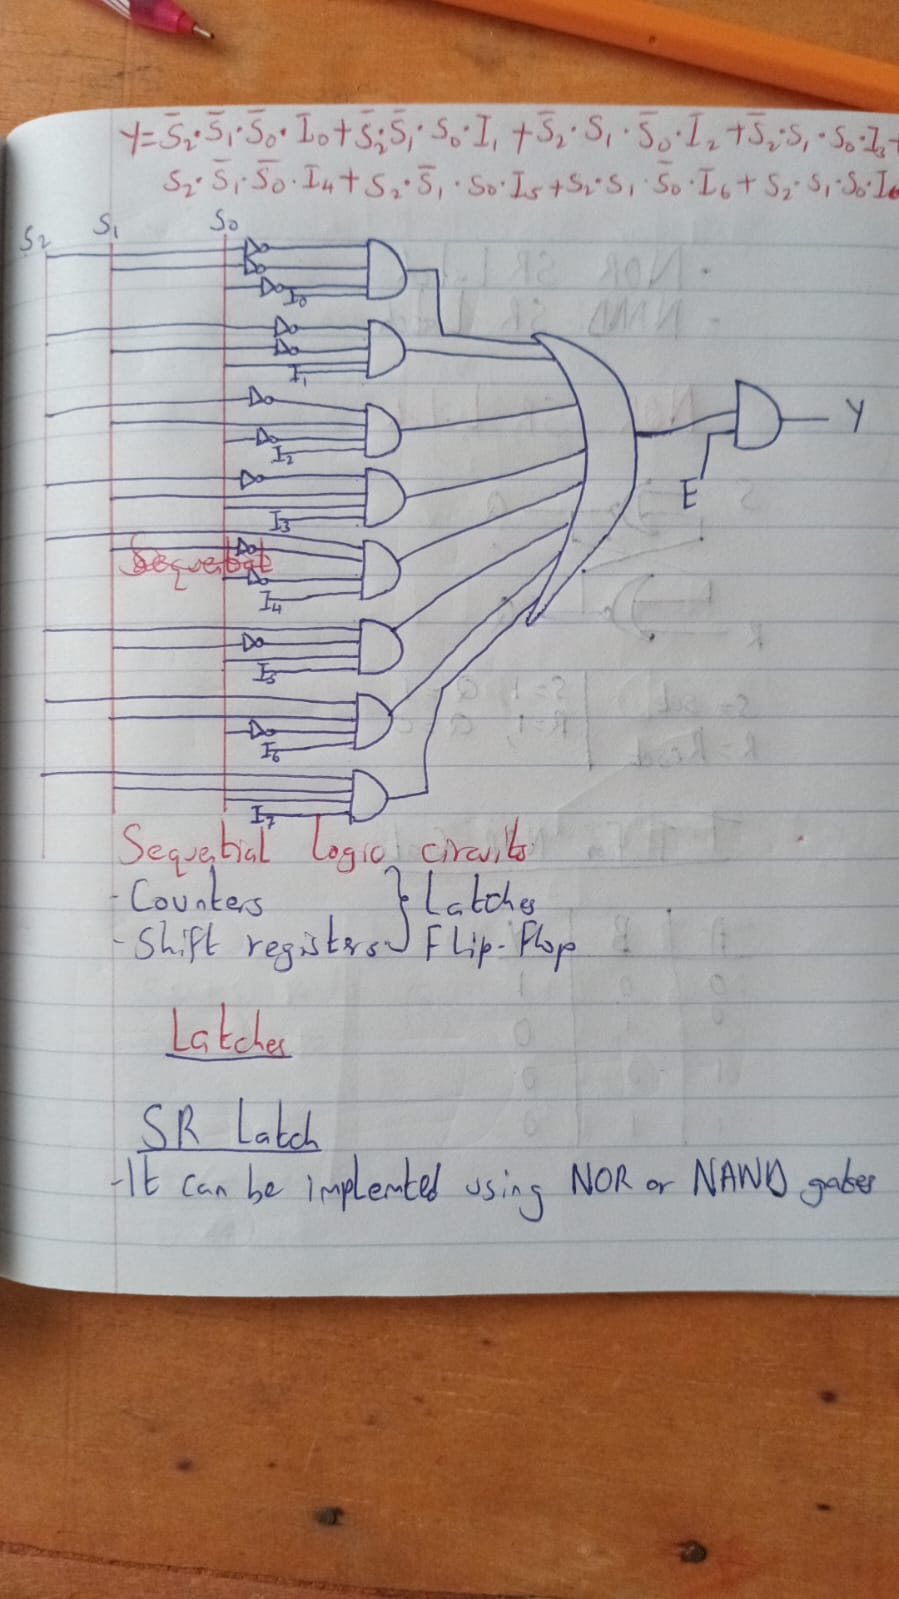 Y = S̄₂·S̄₁·S̄₀·I₀ + S̄₂·S̄₁·S₀·I₁ + S̄₂·S₁·S̄₀·I₂ + S̄₂·S₁·S₀·I₃ +
S₂·S̄₁·S̄₀·I₄ + S₂·S̄₁·S₀·I₅ + S₂·S₁·S̄₀·I₆ + S₂·S₁·S₀·
S₂ S₁ S₀
I₀
I₁
I₂
I₃
I₄
I₅
I₆
I₇
E
Y
Sequential logic circuits
- Counters } Latches
- Shift registers } Flip-Flop
Latches
SR Latch
- It can be implemted using NOR or NAND gates